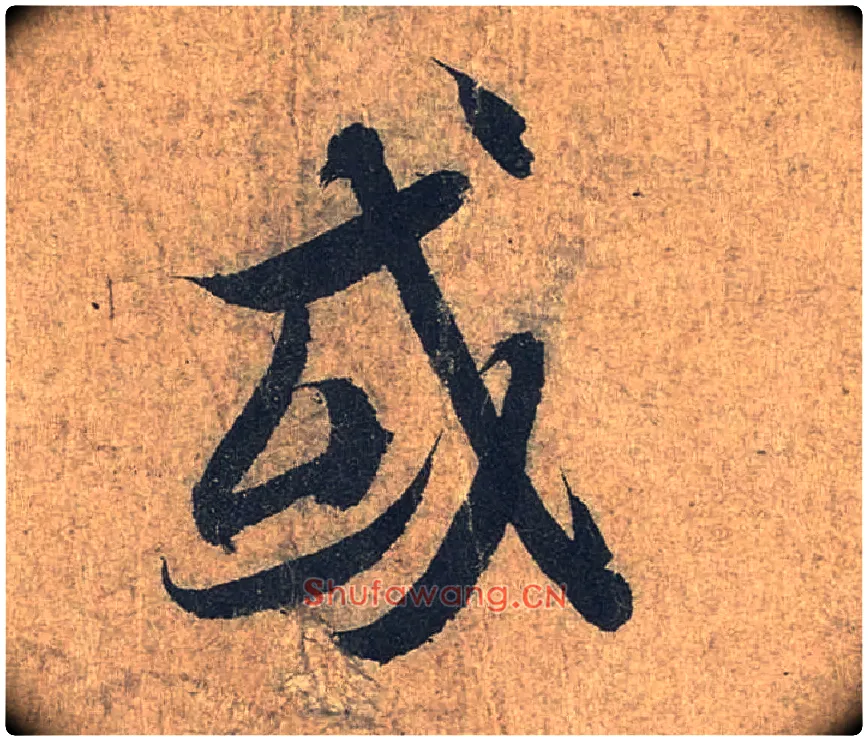 或
Shufawang.CN